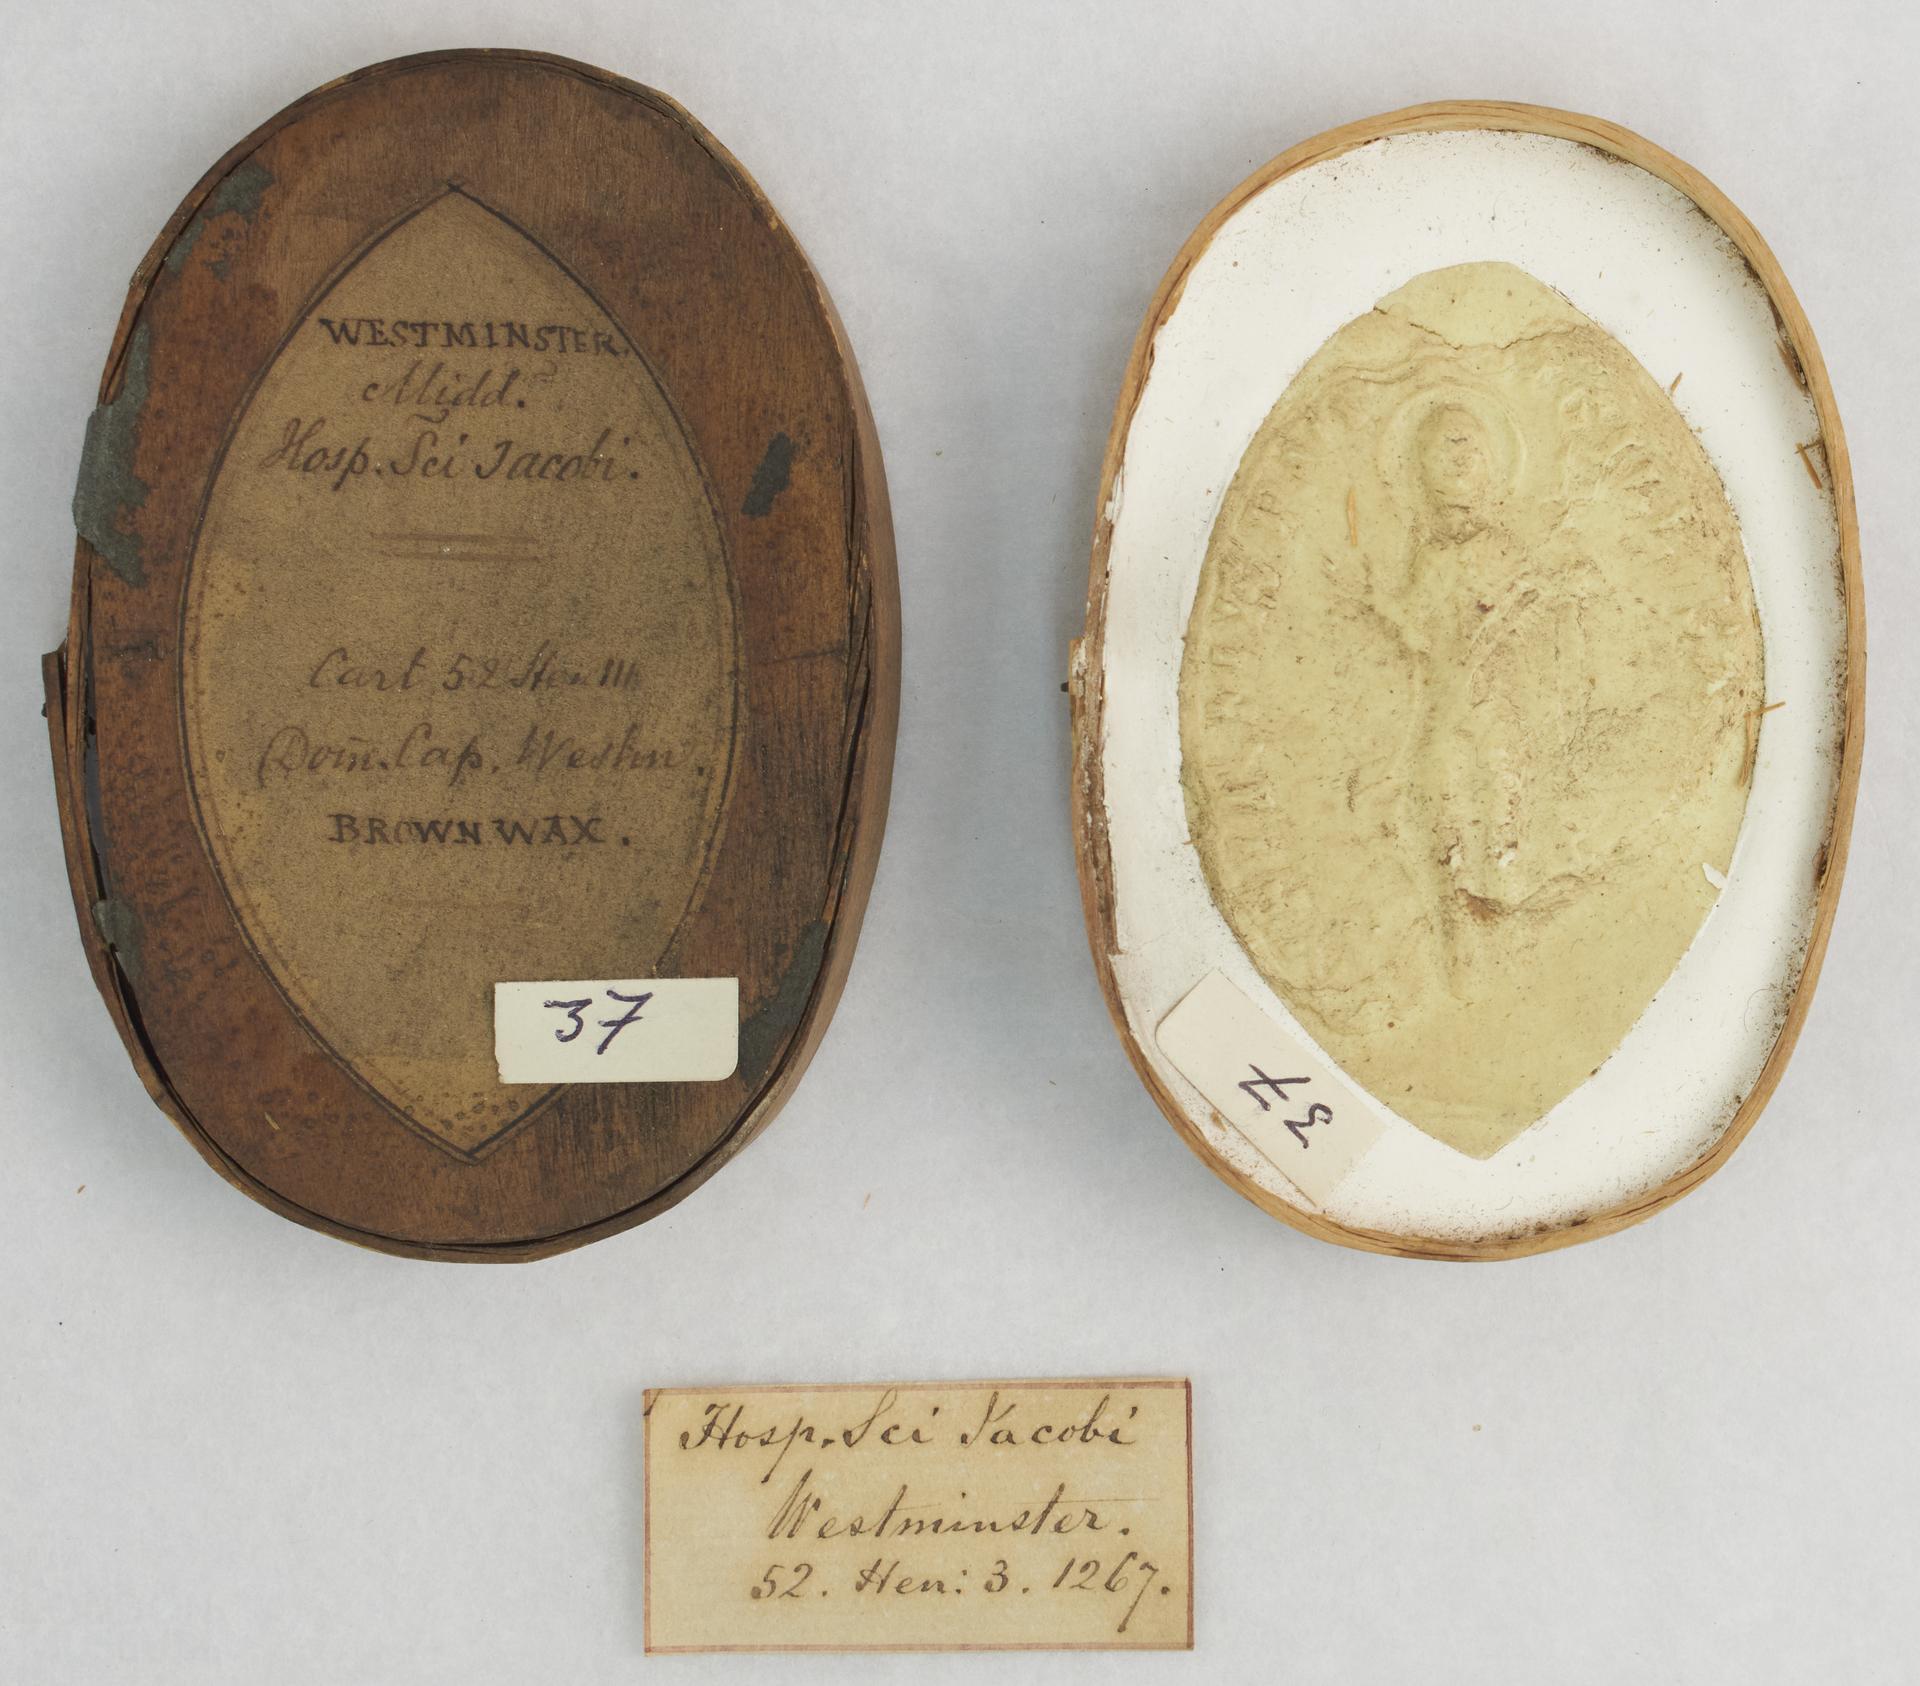 WESTMINSTER.
Midd.
Hosp. Sci Jacobi.
Cart 52 Hen III
Dom̄. Cap. Westm.
BROWN WAX.
37
37
Hosp. Sci Jacobi
Westminster.
52. Hen: 3. 1267.